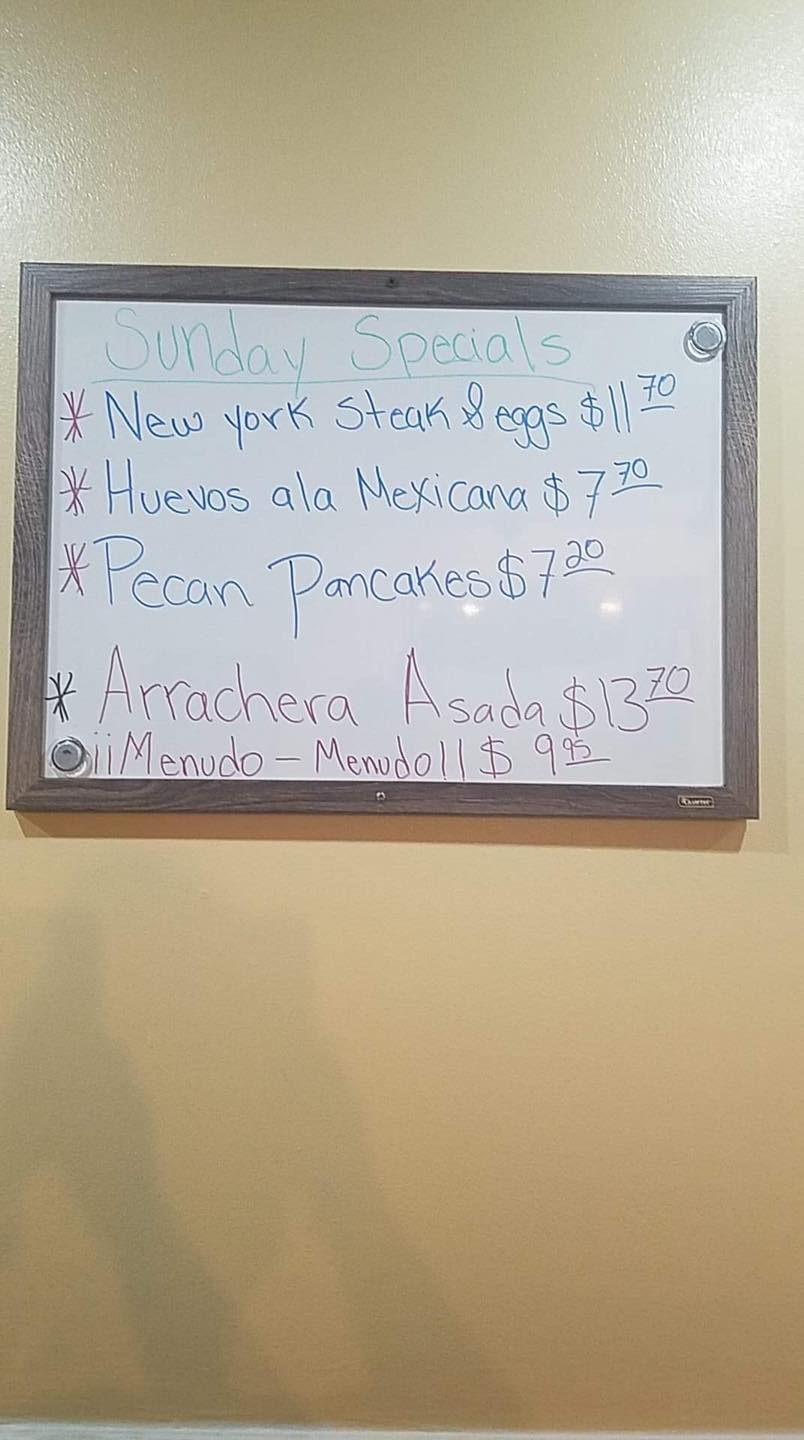 Sunday Specials
* New york steak & eggs $11 70
* Huevos ala Mexicana $7 70
* Pecan Pancakes $7 20
* Arrachera Asada $13 70
¡¡Menudo - Menudo!! $ 9 95
Quartet